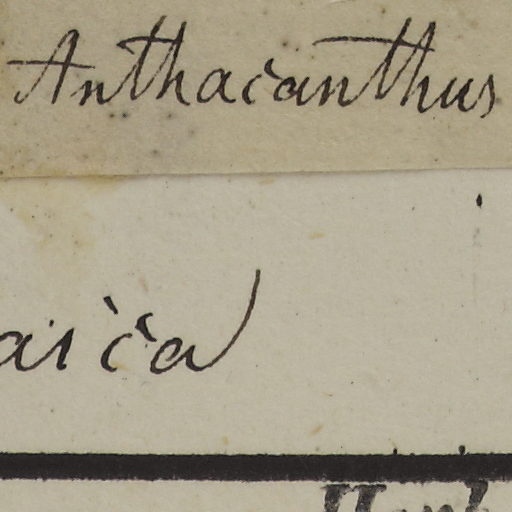 Anthacanthus
aica